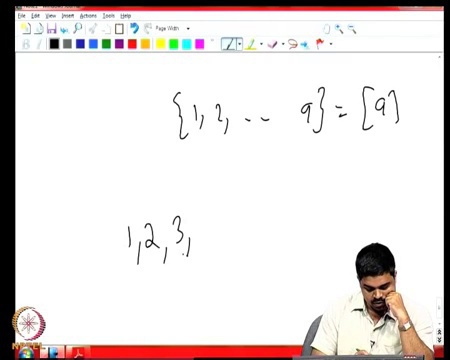 File Edit View Insert Actions Tools Help
Page Width
{1, 2, .. 9} = [9]
1, 2, 3,
NPTEL